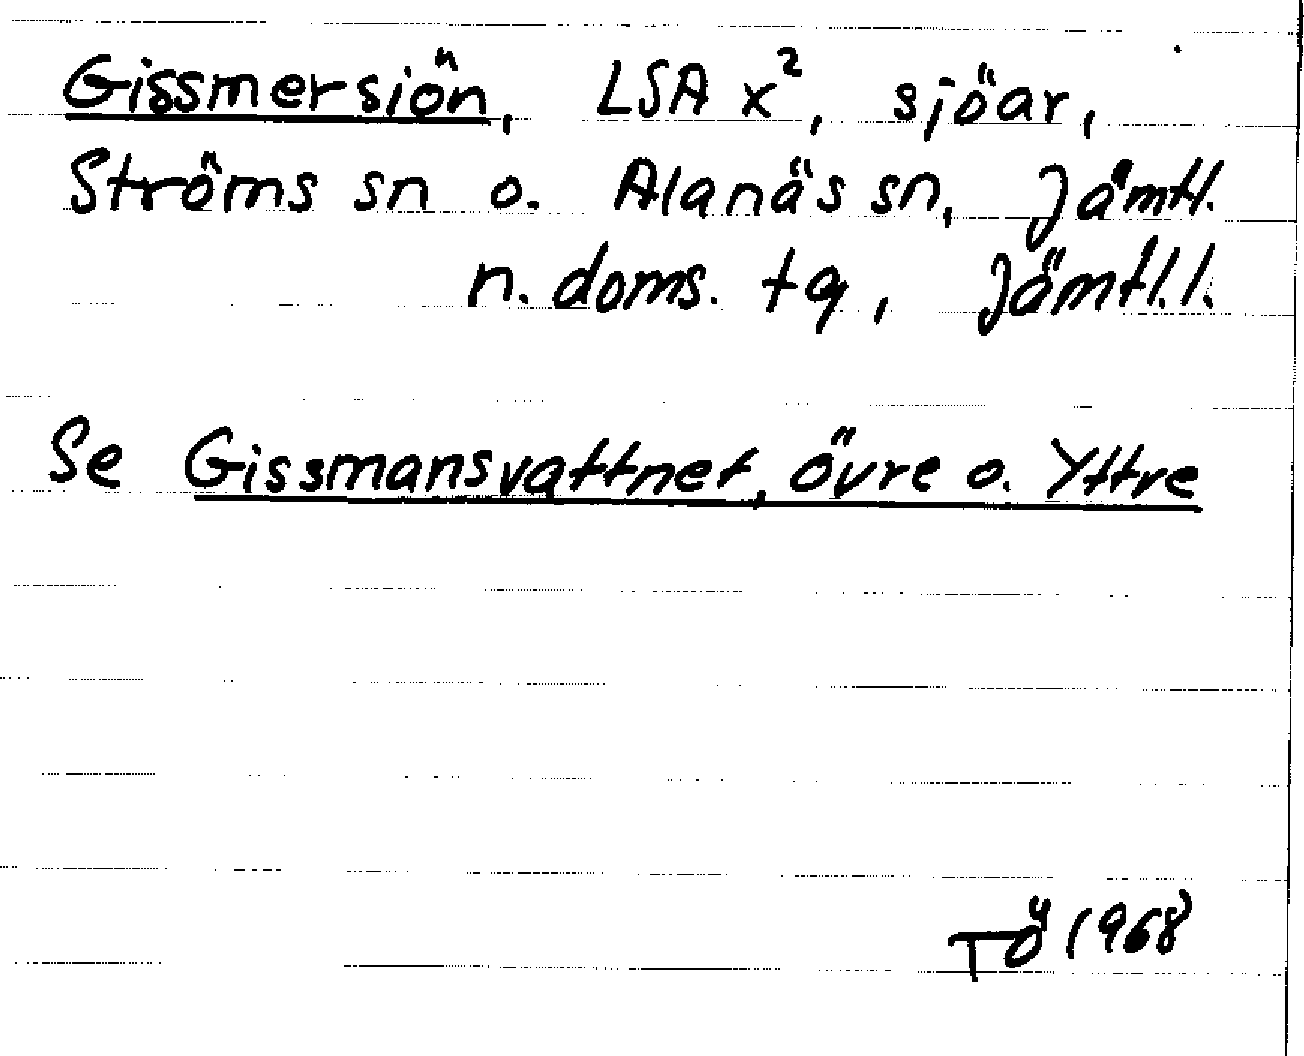 Gissmersiön, LSA x², sjöar,
Ströms sn o. Alanäs sn, Jämtl.
n. doms. tg, Jämtl. l.
Se Gissmansvattnet, Övre o. Yttre
TÖ 1968